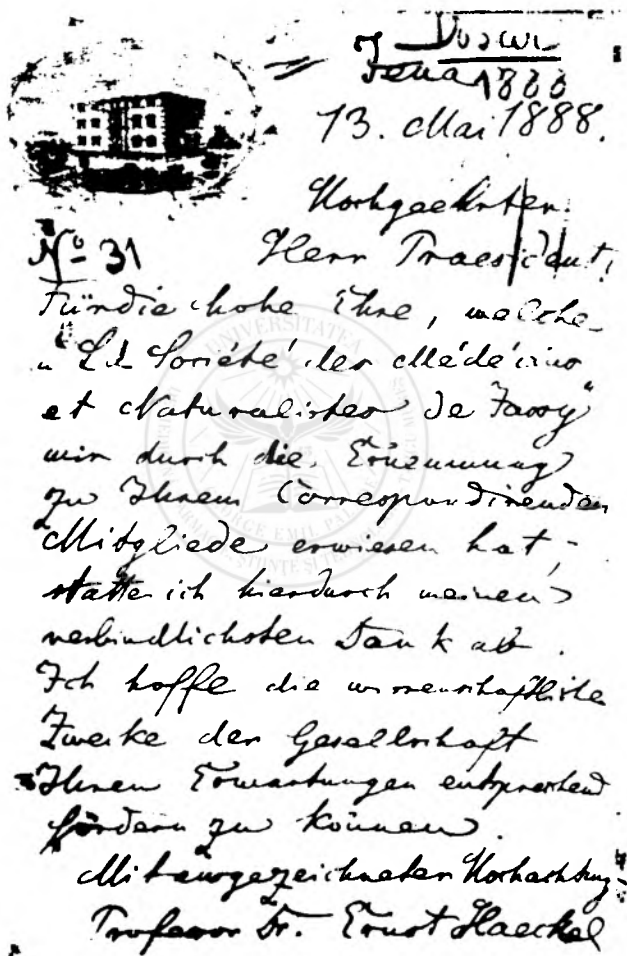 Jena 1888
13. Mai 1888.
Hochgeehrter
Herr Praesident,
No 31
Für die hohe Ehre, welche
"La Société des Médécins
et Naturalistes de Jassy"
mir durch die Ernennung
zu Ihrem Correspondirenden
Mitgliede erwiesen hat,
statte ich hierdurch meinen
verbindlichsten Dank ab.
Ich hoffe die wissenschaftliche
Zwecke der Gesellschaft
Ihren Erwartungen entsprechend
fördern zu können.
Mit ausgezeichneter Hochachtung
Professor Dr. Ernst Haeckel
UNIVERSITATEA
GEORGE EMIL PALADE